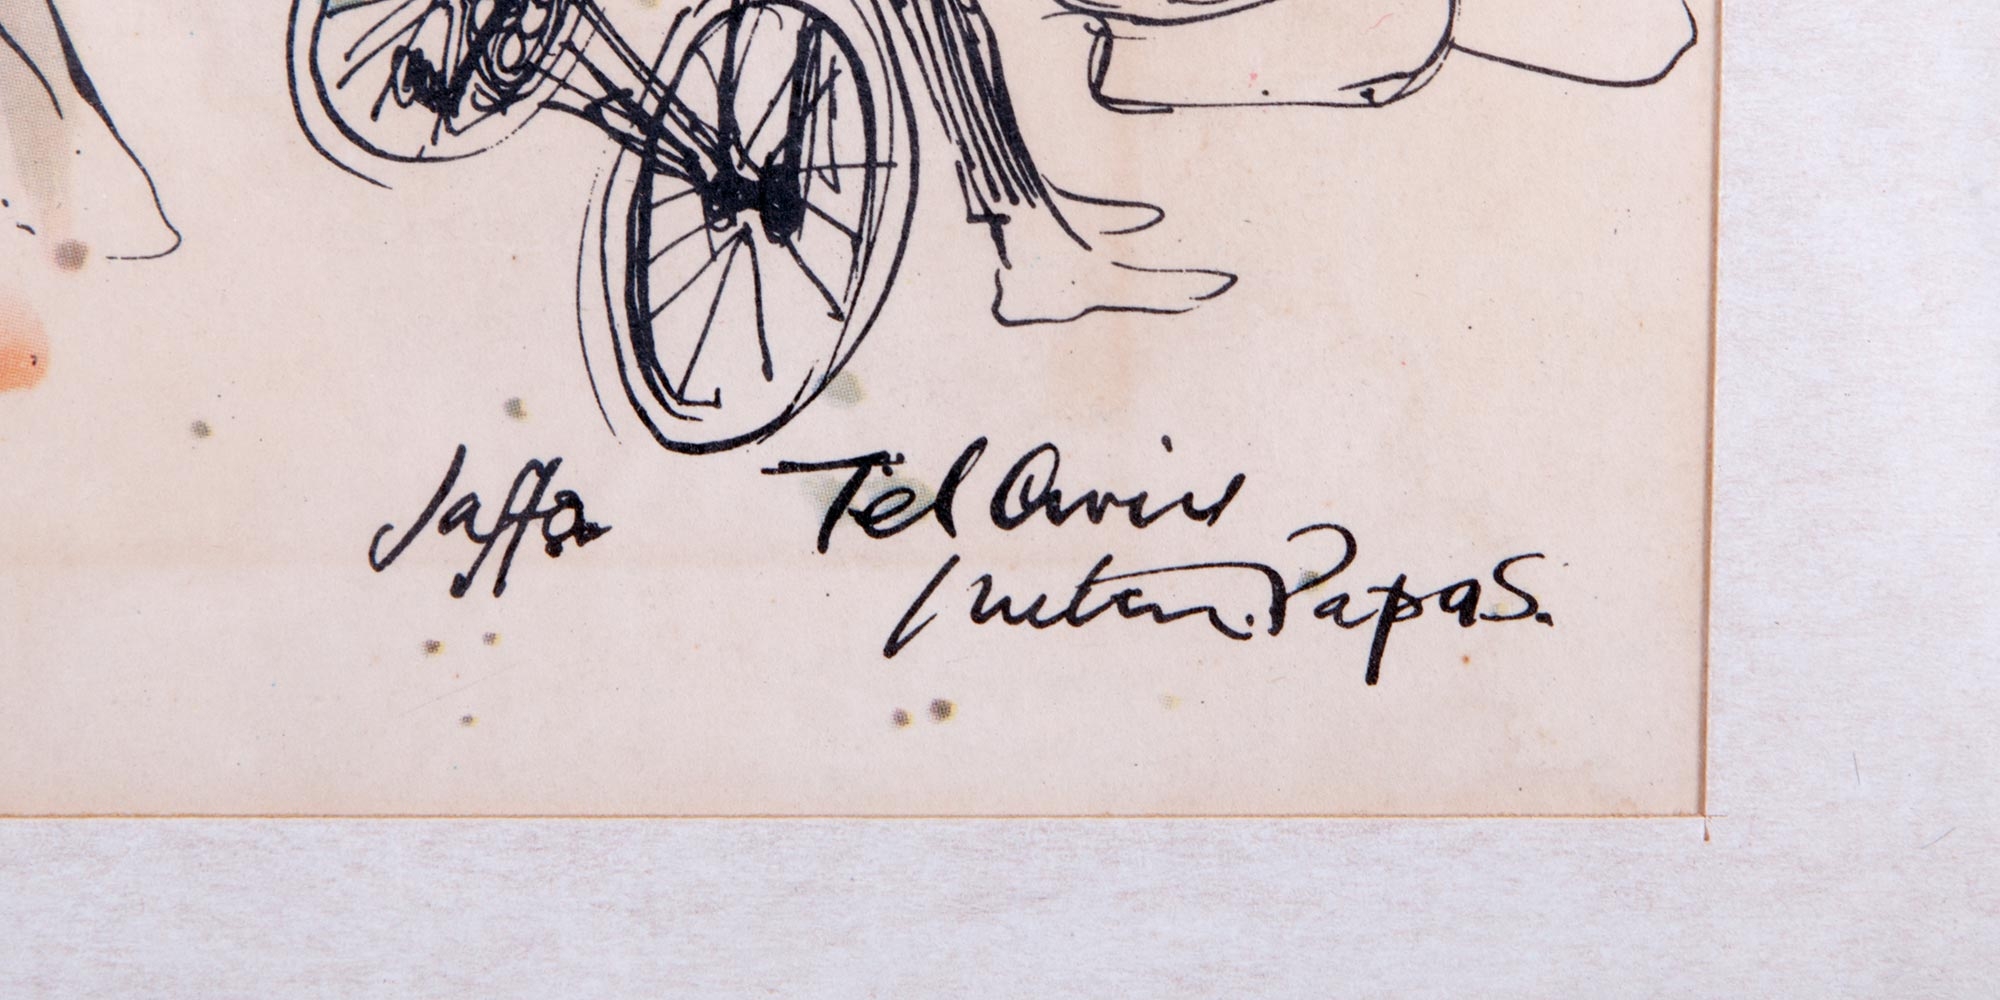 Jaffa Tel Aviv
Papas.